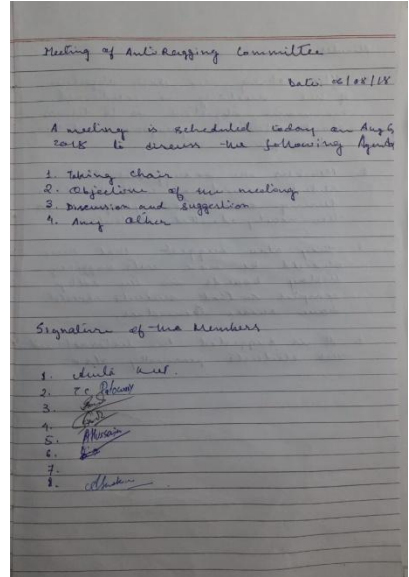 Meeting of Anti Ragging Committee
Date: 06/08/18
A meeting is scheduled today on Aug 6
2018 to discuss the following Agenda
1. Taking Chair
2. Objectives of the meeting
3. Discussion and suggestion
4. Any other
Signature of the Members
1.
2. T. C.
3.
4.
5. AHussain
6.
7.
8.